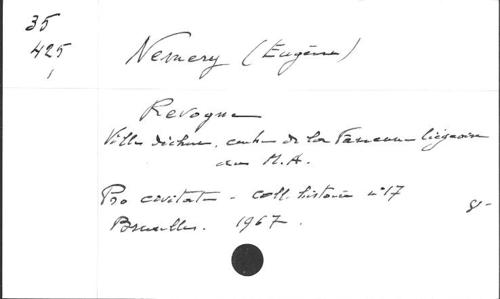 35
425
Nemery (Eugène)
Revogne
Ville déchue, centre de la Famenne liégeoise
au M.A.
Pro civitate - coll. histoire n° 17
Bruxelles. 1967.
8-